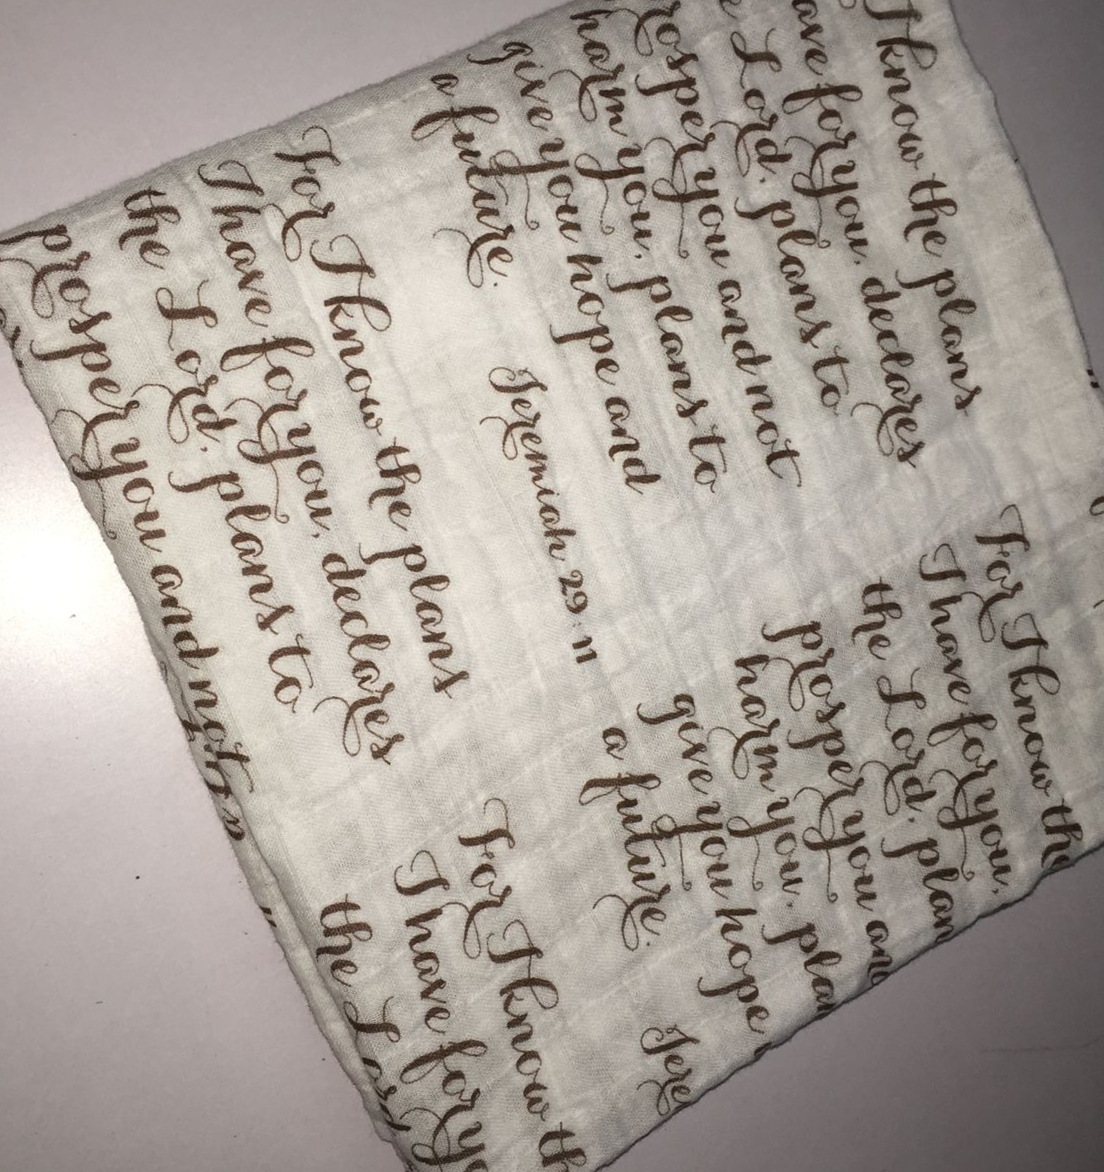 I know the plans
ave for you, declares
e Lord, plans to
rosper you and not
harm you, plans to
give you hope and
a future.
Jeremiah 29:11
For I know the plans
I have for you, declares
the Lord, plans to
prosper you and not
For I know the
I have for you,
the Lord, plan
prosper you and
harm you, plan
give you hope
a future.
Jere
For I know th
I have for yo
the Lord